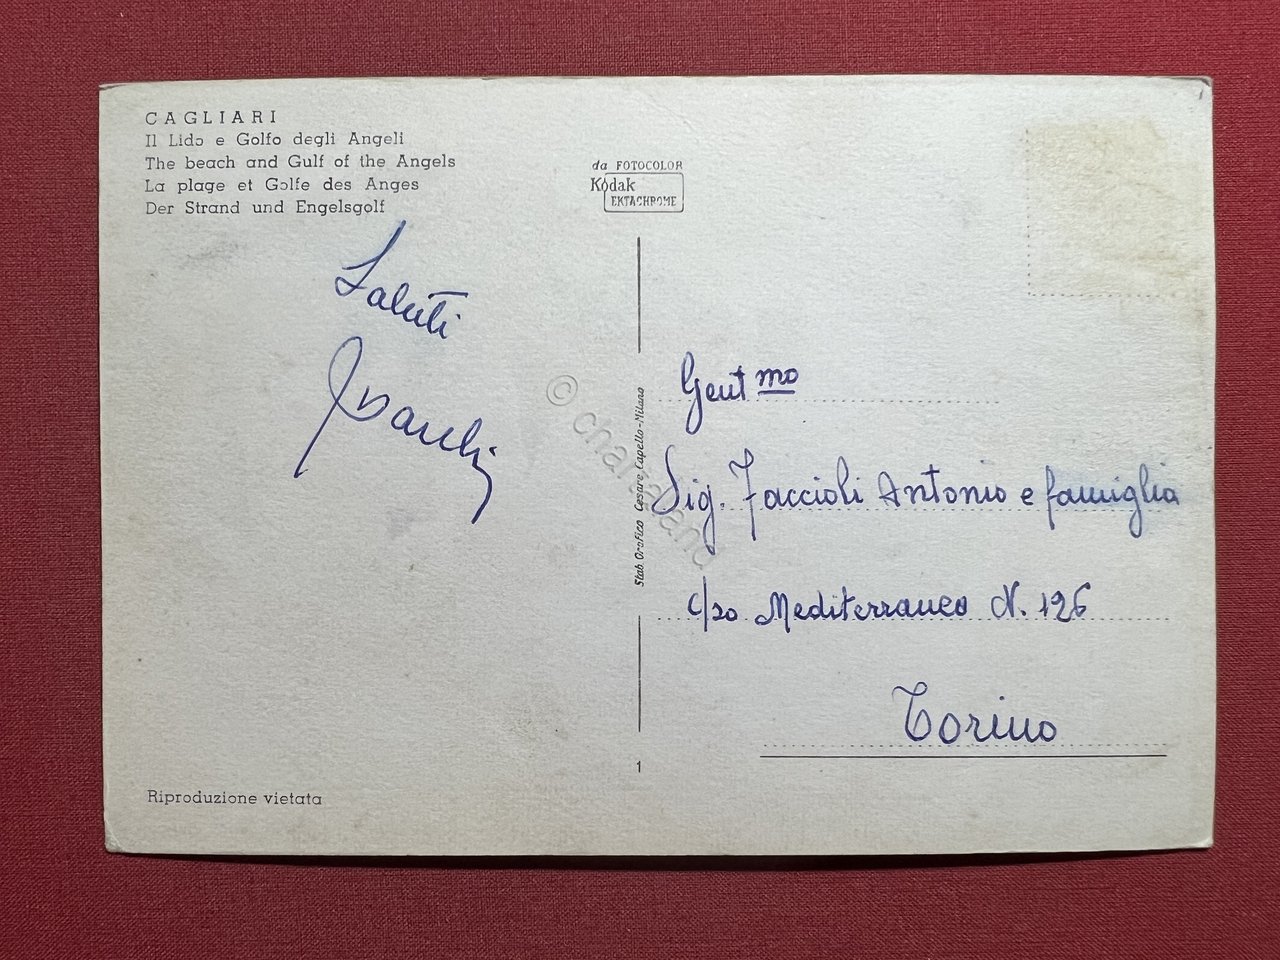 CAGLIARI
Il Lido e Golfo degli Angeli
The beach and Gulf of the Angels
La plage et Golfe des Anges
Der Strand und Engelsgolf
da FOTOCOLOR
Kodak
EKTACHROME
Saluti
Gent mo
Sig. Faccioli Antonio e famiglia
c/so Mediterraneo N. 126
Torino
Stab. Grafico Cesare Capello - Milano
1
Riproduzione vietata